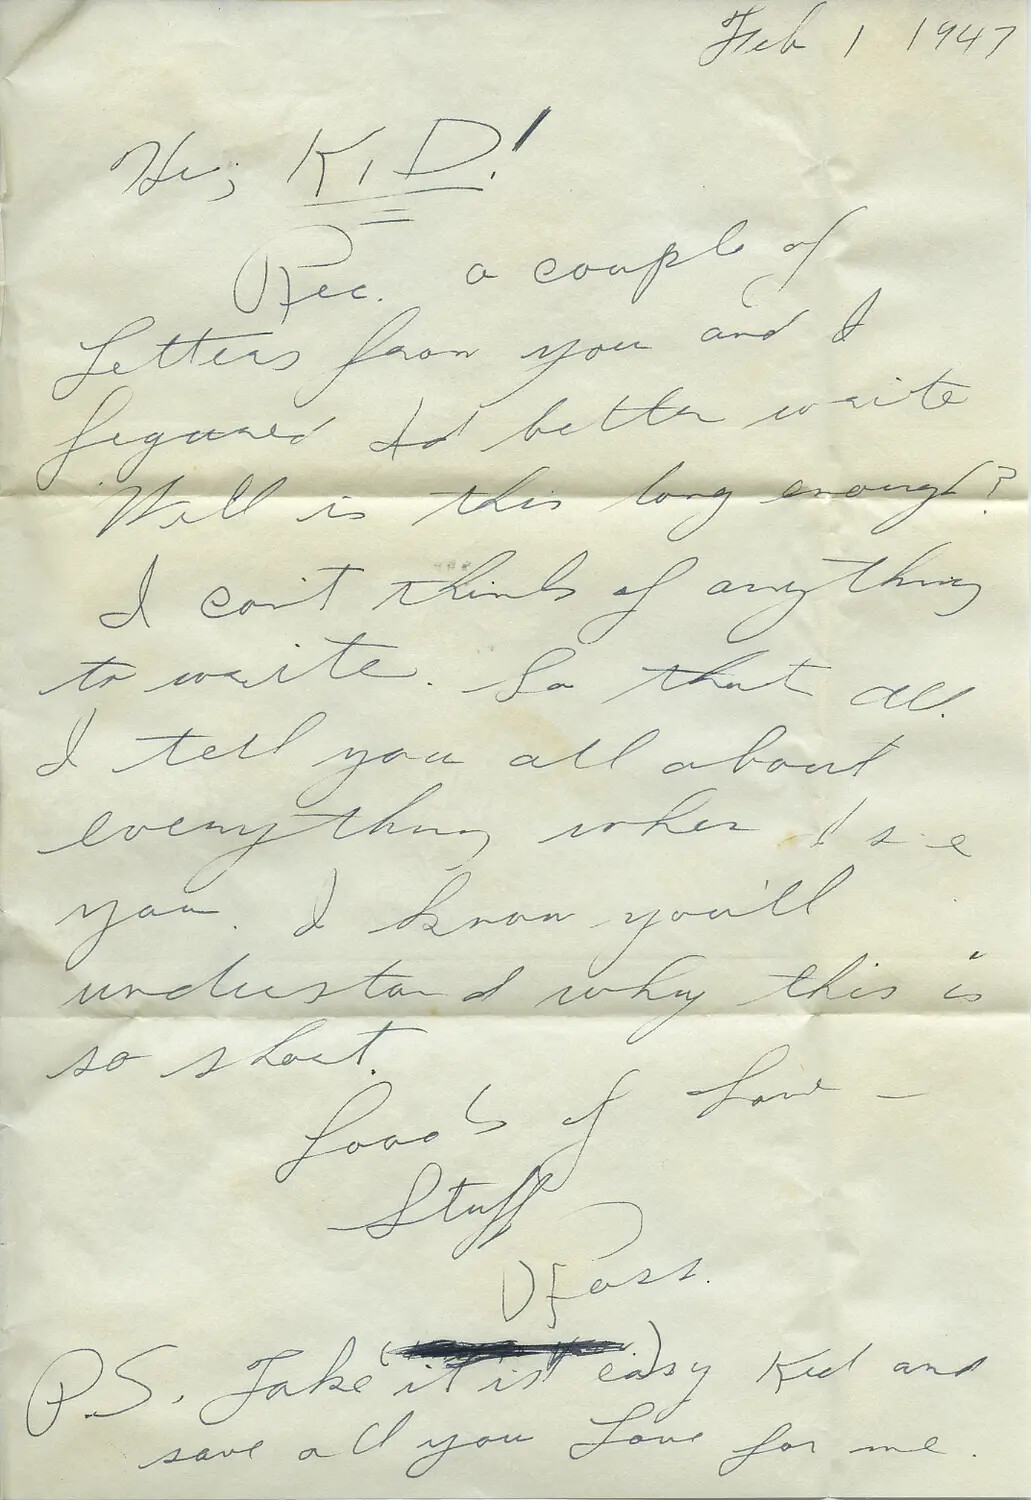 Feb 1 1947
Hi; KID!
Rec. a couple of
letters from you and I
figured I'd better write
Well is this long enough?
I can't think of anything
to write. So that all.
I tell you all about
everything when I see
you. I know you'll
understand why this is
so short.
Loads of Love —
Stuff
Ross.
P.S. Take it is easy Kid and
save all you Love for me.